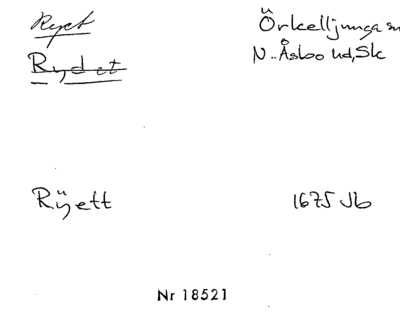 Ryet
Örkelljunga sn
Rydet
N. Åsbo hd, Sk
Rÿett
1675 Jb
Nr 18521